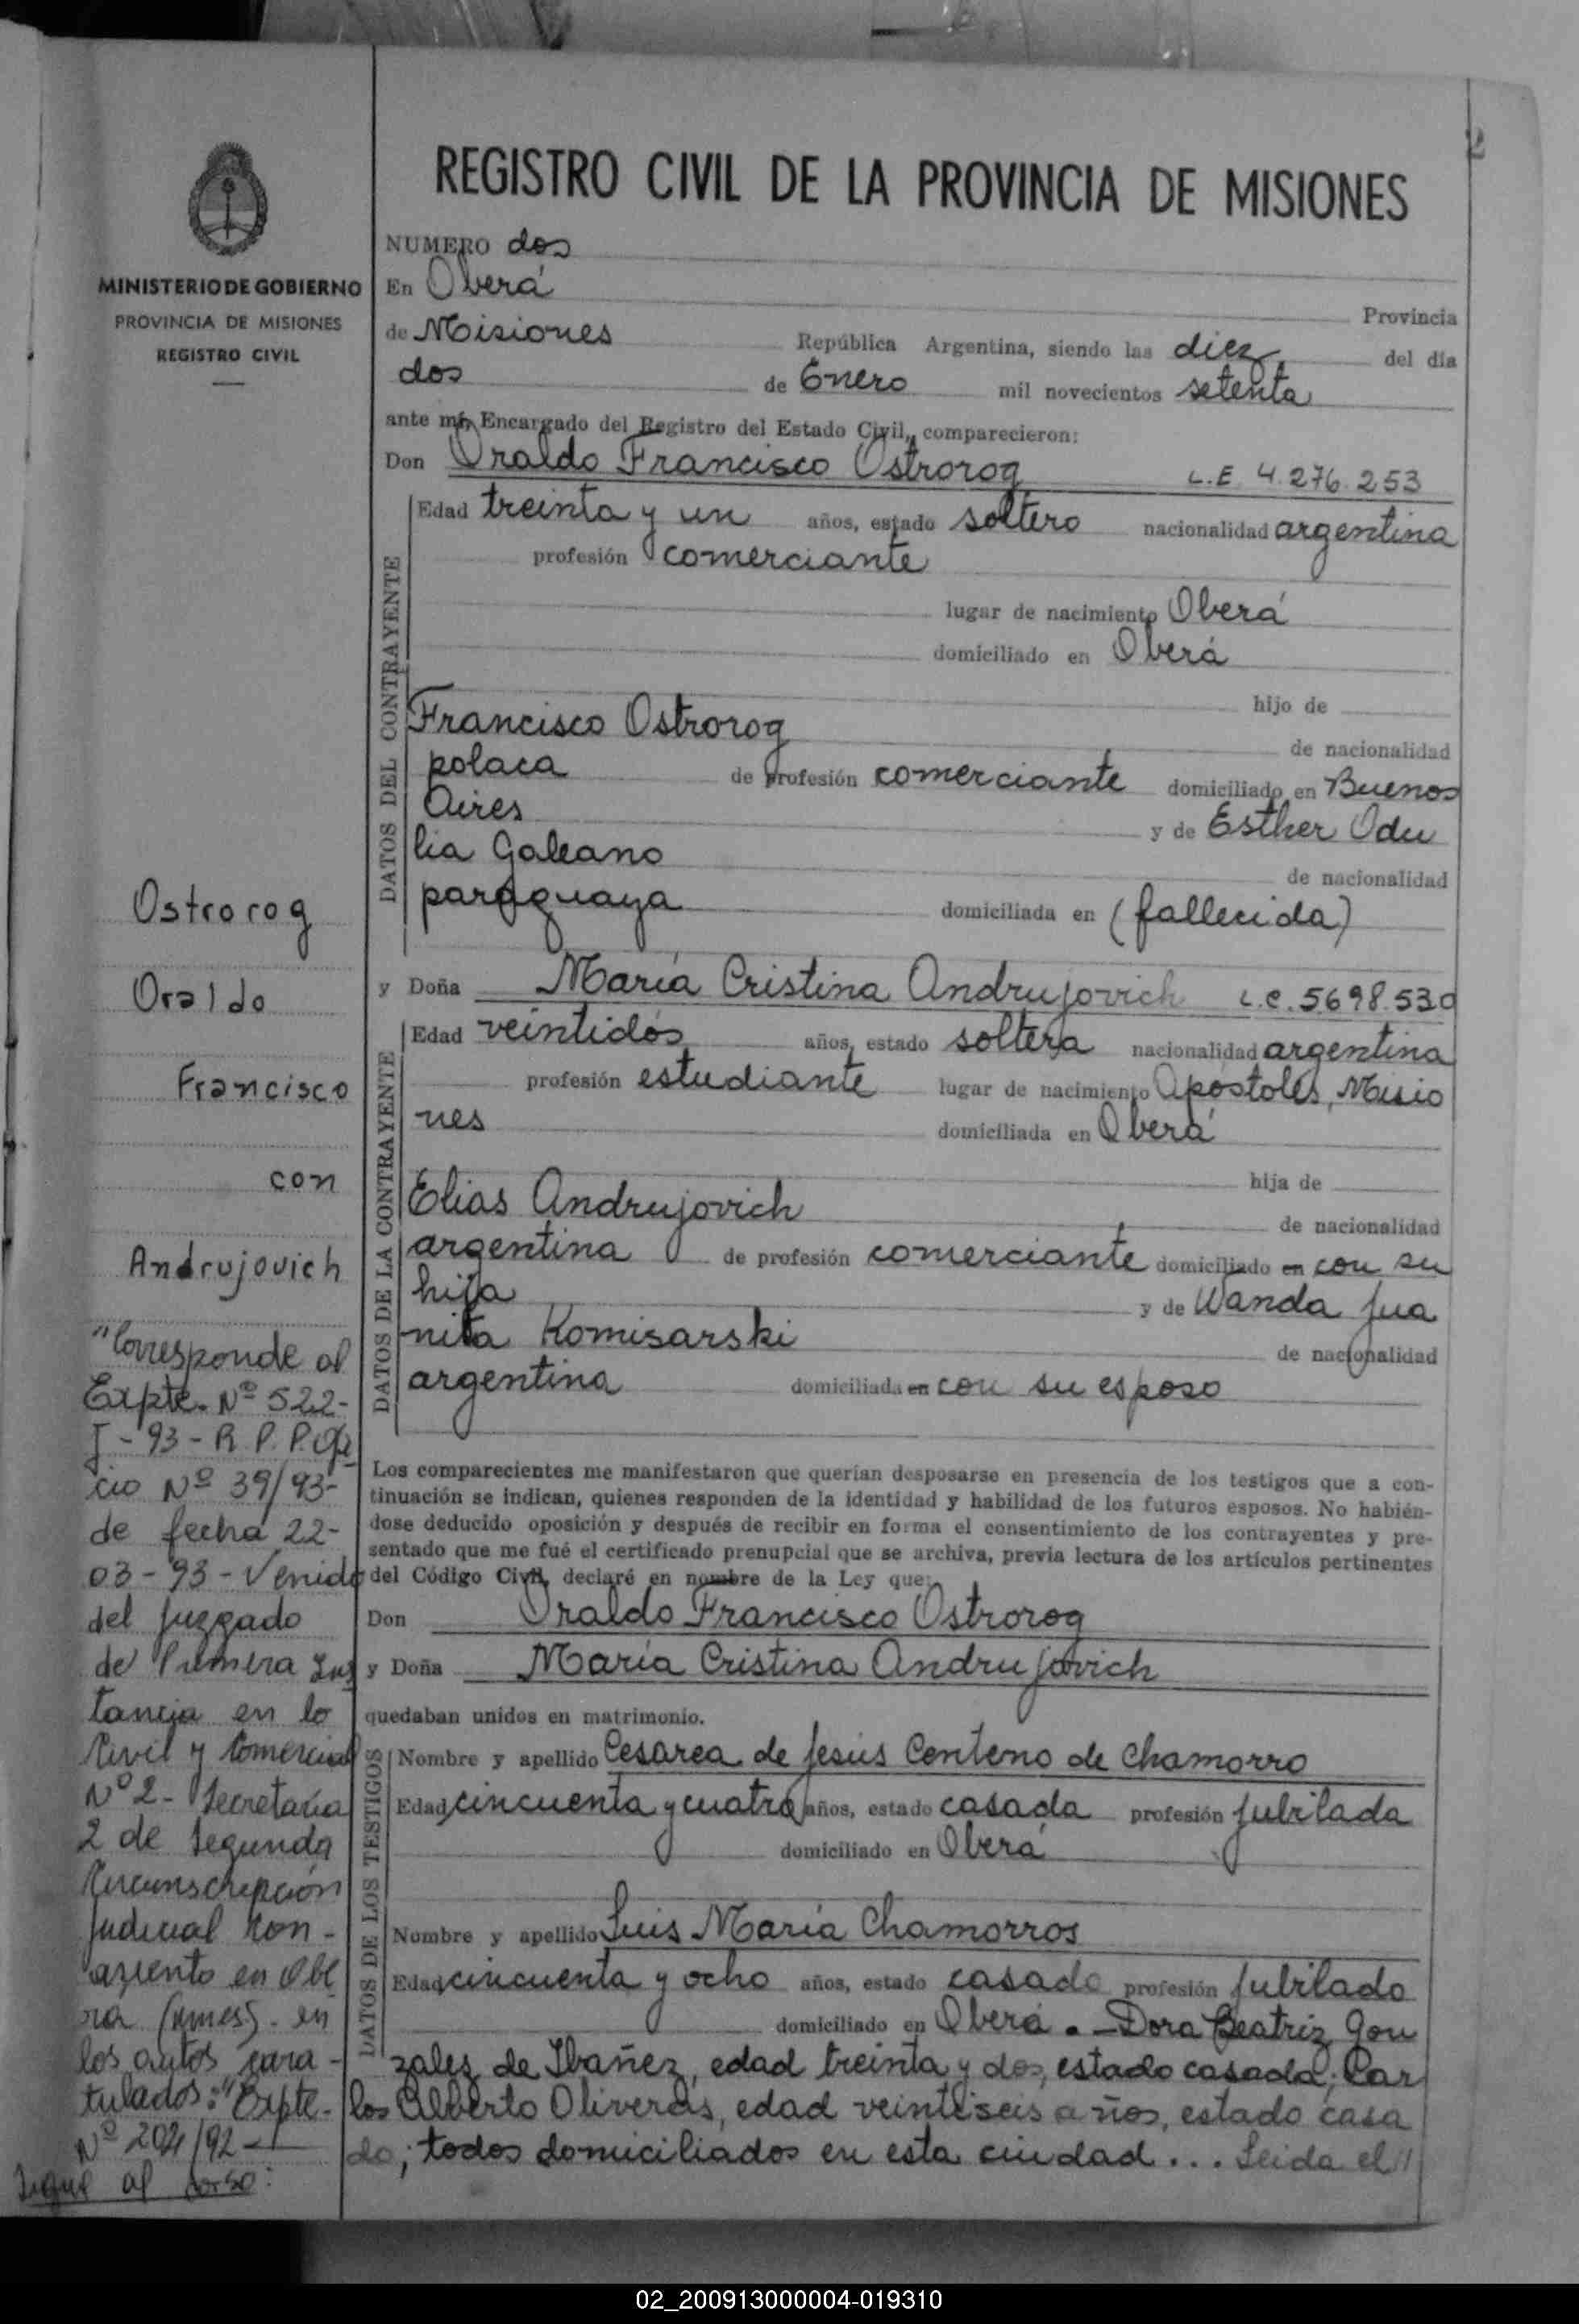 2
REGISTRO CIVIL DE LA PROVINCIA DE MISIONES
MINISTERIO DE GOBIERNO
PROVINCIA DE MISIONES
REGISTRO CIVIL
NUMERO dos
En Oberá
Provincia
de Misiones República Argentina, siendo las diez del día
dos de Enero mil novecientos setenta
ante mí, Encargado del Registro del Estado Civil, comparecieron:
Don Oraldo Francisco Ostrorog L.E. 4.276.253
DATOS DEL CONTRAYENTE
Edad treinta y un años, estado soltero nacionalidad argentina
profesión comerciante
lugar de nacimiento Oberá
domiciliado en Oberá
hijo de
Francisco Ostrorog
de nacionalidad
polaca de profesión comerciante domiciliado en Buenos
Aires y de Esther Odu
lia Galeano
de nacionalidad
paraguaya domiciliada en (fallecida)
y Doña María Cristina Andrujovich L.C. 5698.530
DATOS DE LA CONTRAYENTE
Edad veintidós años, estado soltera nacionalidad argentina
profesión estudiante lugar de nacimiento Apóstoles, Misio
nes domiciliada en Oberá
hija de
Elias Andrujovich
de nacionalidad
argentina de profesión comerciante domiciliado en con su
hija y de Wanda Jua
nita Komisarski
de nacionalidad
argentina domiciliada en con su esposo
Los comparecientes me manifestaron que querían desposarse en presencia de los testigos que a con-
tinuación se indican, quienes responden de la identidad y habilidad de los futuros esposos. No habién-
dose deducido oposición y después de recibir en forma el consentimiento de los contrayentes y pre-
sentado que me fué el certificado prenupcial que se archiva, previa lectura de los artículos pertinentes
del Código Civil, declaré en nombre de la Ley que:
Don Oraldo Francisco Ostrorog
y Doña María Cristina Andrujovich
quedaban unidos en matrimonio.
DATOS DE LOS TESTIGOS
Nombre y apellido Cesarea de Jesús Centeno de Chamorro
Edad cincuenta y cuatro años, estado casada profesión jubilada
domiciliado en Oberá
Nombre y apellido Luis María Chamorros
Edad cincuenta y ocho años, estado casado profesión jubilado
domiciliado en Oberá. - Dora Beatriz Gon
zales de Ibañez, edad treinta y dos, estado casada; Car
los Alberto Oliveras, edad veintiseis años, estado casa
do; todos domiciliados en esta ciudad... Leida el //
Ostrorog
Oraldo
Francisco
con
Andrujovich
"Corresponde al
Expte. Nº 522-
I-93-R.P.P. Ofi
cio Nº 39/93-
de fecha 22-
03-93- Venido
del Juzgado
de Primera Ins
tancia en lo
Civil y Comercial
Nº 2- Secretaría
2 de Segunda
Circunscripción
Judicial con
asiento en Obe
rá (Mnes). en
los autos cara-
tulados: "Expte.
Nº 204/92-
Sigue al dorso:
02_200913000004-019310